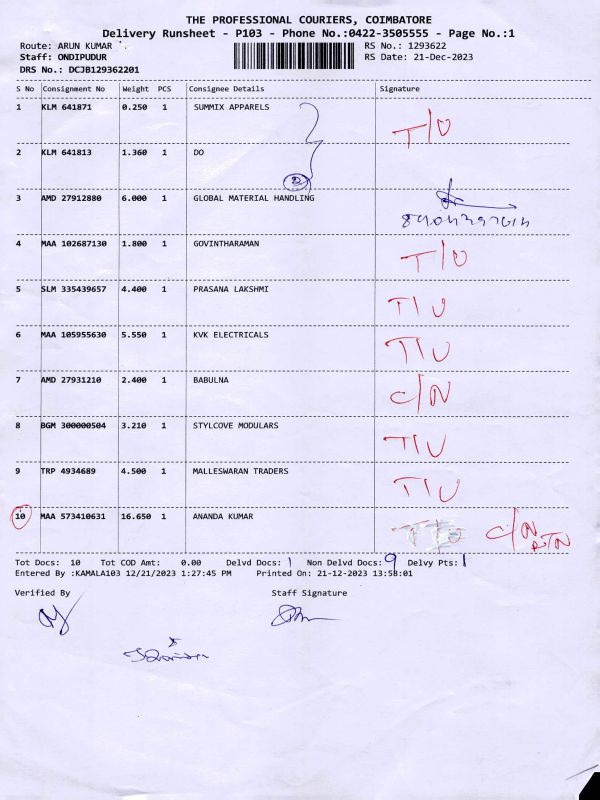 THE PROFESSIONAL COURIERS, COIMBATORE
Delivery Runsheet - P103 - Phone No.:0422-3505555 - Page No.:1
Route: ARUN KUMAR RS No.: 1293622
Staff: ONDIPUDUR RS Date: 21-Dec-2023
DRS No.: DCJB129362201
S No Consignment No Weight PCS Consignee Details Signature
1 KLM 641871 0.250 1 SUMMIX APPARELS T/U
2 KLM 641813 1.360 1 DO
2
3 AMD 27912880 6.000 1 GLOBAL MATERIAL HANDLING
4 MAA 102687130 1.800 1 GOVINTHARAMAN T/U
5 SLM 335439657 4.400 1 PRASANA LAKSHMI T/U
6 MAA 105955630 5.550 1 KVK ELECTRICALS T/U
7 AMD 27931210 2.400 1 BABULNA C/N
8 BGM 300000504 3.210 1 STYLCOVE MODULARS T/U
9 TRP 4934689 4.500 1 MALLESWARAN TRADERS T/U
10 MAA 573410631 16.650 1 ANANDA KUMAR T/U C/N RTN
Tot Docs: 10 Tot COD Amt: 0.00 Delvd Docs: 1 Non Delvd Docs: 9 Delvy Pts: 1
Entered By :KAMALA103 12/21/2023 1:27:45 PM Printed On: 21-12-2023 13:58:01
Verified By Staff Signature